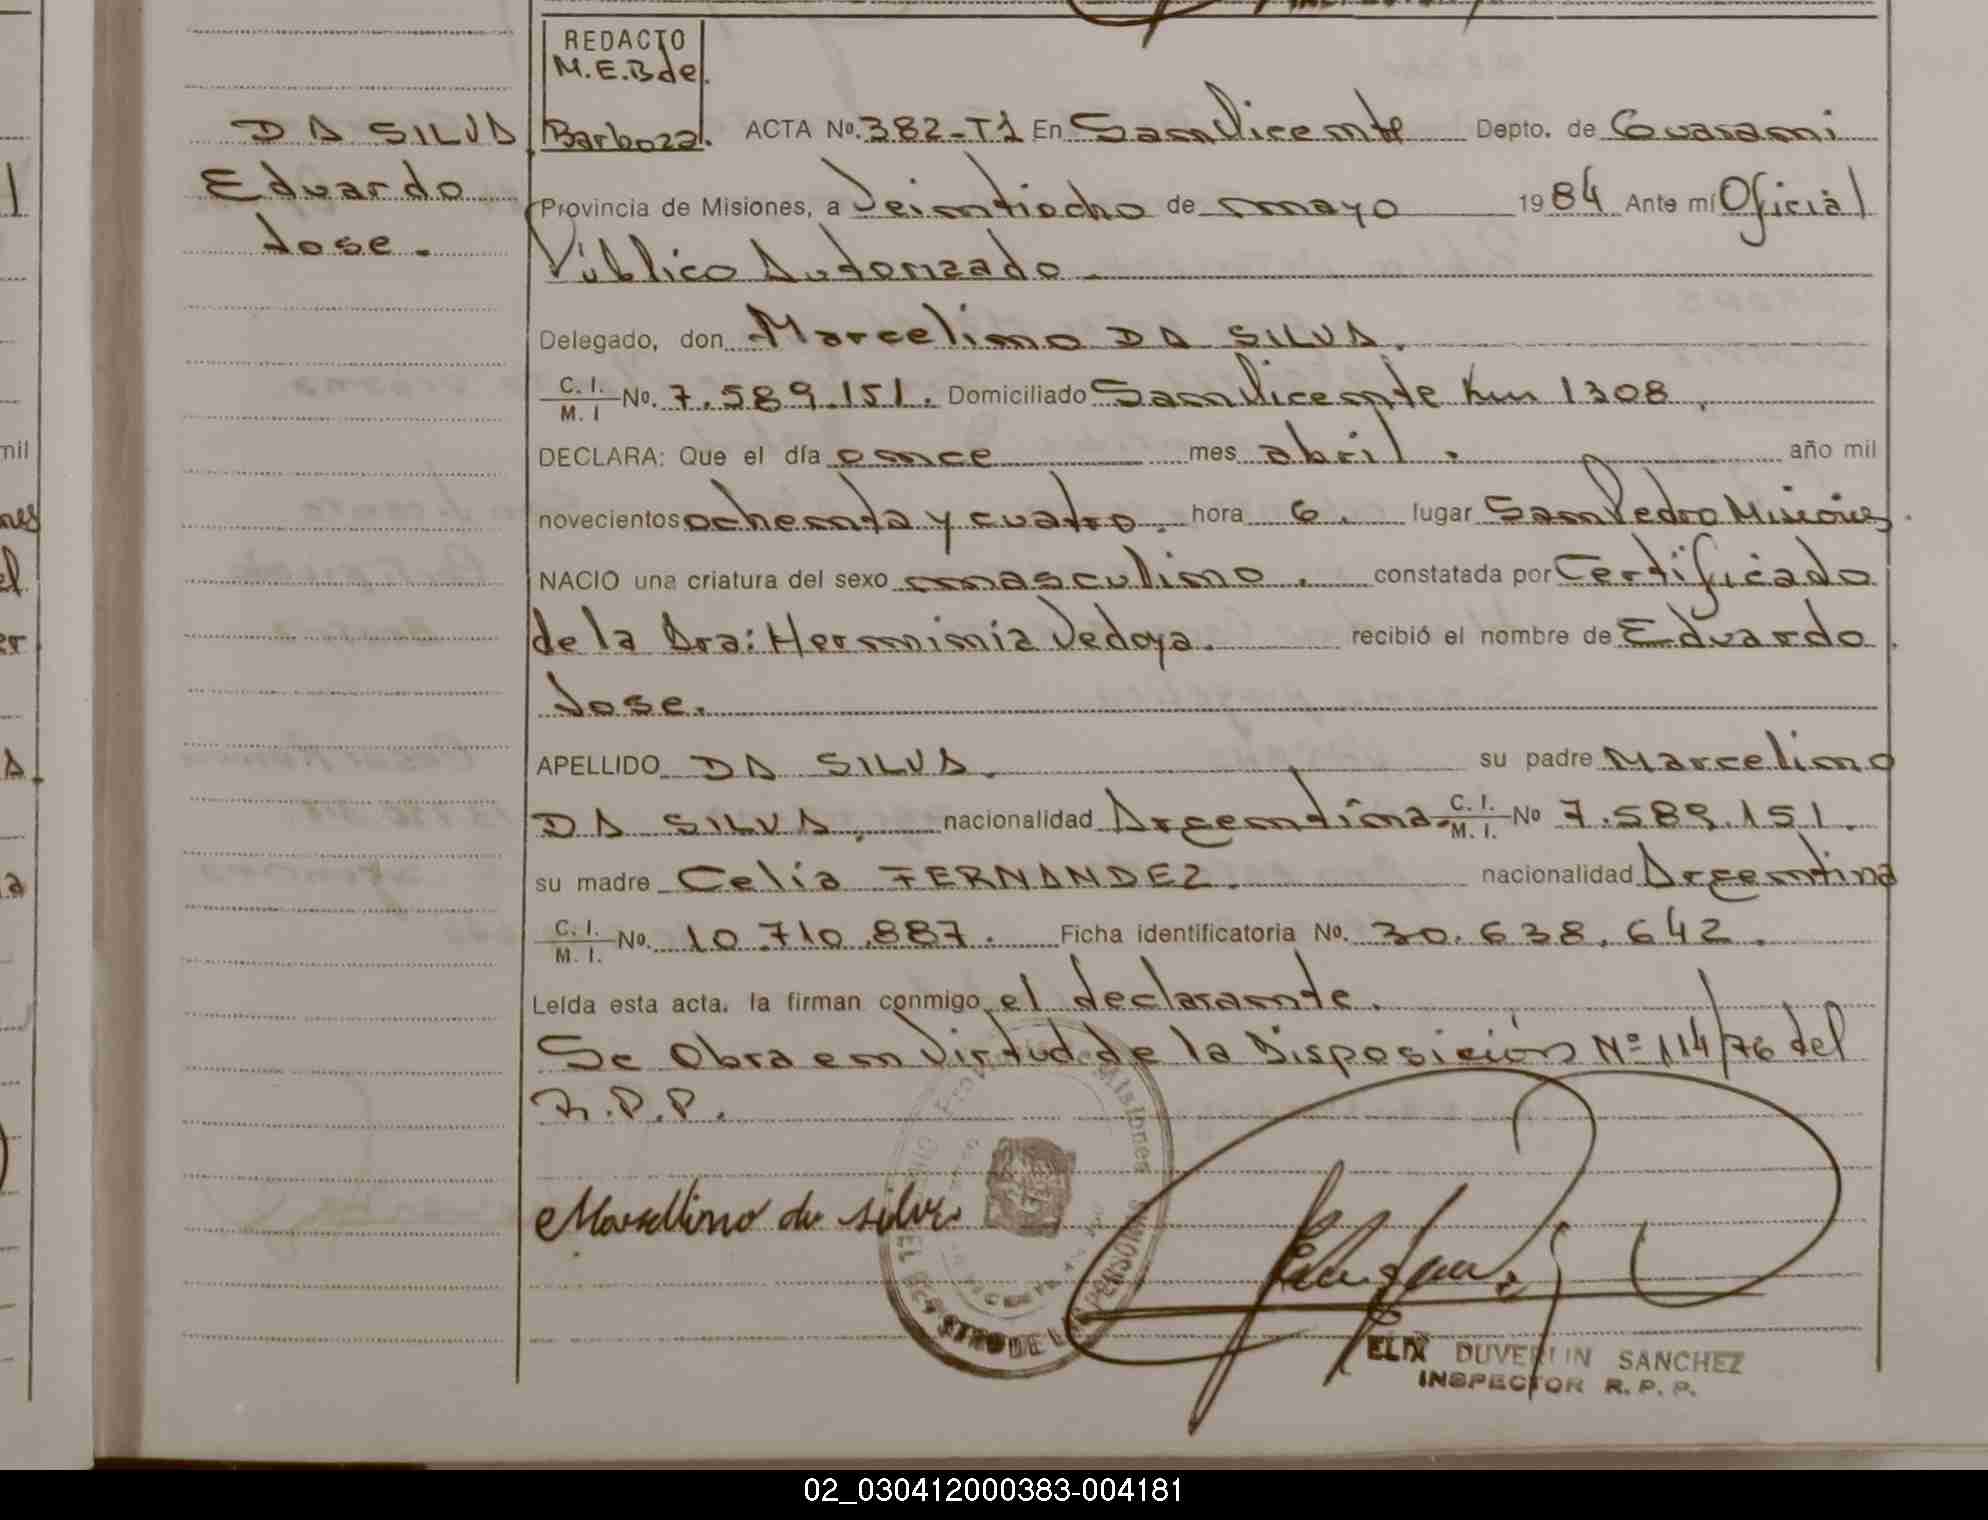 REDACTO
M.E.B de
Barboza.
DA SILVA
Eduardo
Jose.
ACTA No. 382-T1 En San Vicente Depto. de Guarani
Provincia de Misiones, a Veintiocho de mayo 1984 Ante mí Oficial
Público Autorizado.
Delegado, don Marcelino DA SILVA.
C. I. / M. I No. 7.589.151. Domiciliado San Vicente Km 1308.
DECLARA: Que el día once mes abril. año mil
novecientos ochenta y cuatro. hora 6. lugar San Pedro Misiones.
NACIO una criatura del sexo masculino. constatada por Certificado
de la Dra: Herminia Vedoya. recibió el nombre de Eduardo
Jose.
APELLIDO DA SILVA. su padre Marcelino
DA SILVA. nacionalidad Argentina. C. I. / M. I. No 7.589.151.
su madre Celia FERNANDEZ. nacionalidad Argentina
C. I. / M. I. No. 10.710.887. Ficha identificatoria No. 30.638.642.
Leída esta acta, la firman conmigo el declarante.
Se Obra en Virtud de la Disposición Nº 114/76 del
R.P.P.
Marcellino da silva
Misiones
ELIX DUVERLIN SANCHEZ
INSPECTOR R. P. P.
02_030412000383-004181